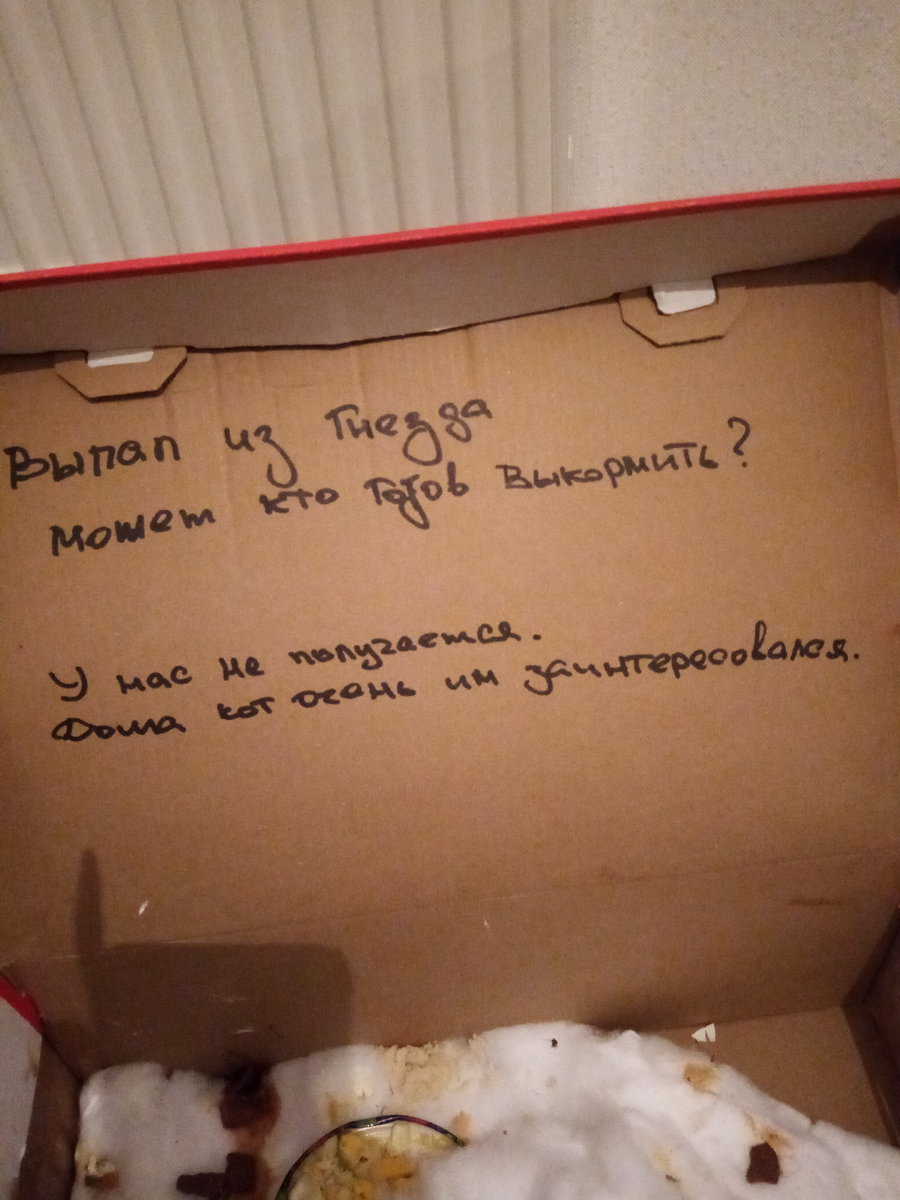 Выпал из Гнезда
может кто готов выкормить?
У нас не получается.
Дома кот очень им заинтересовался.